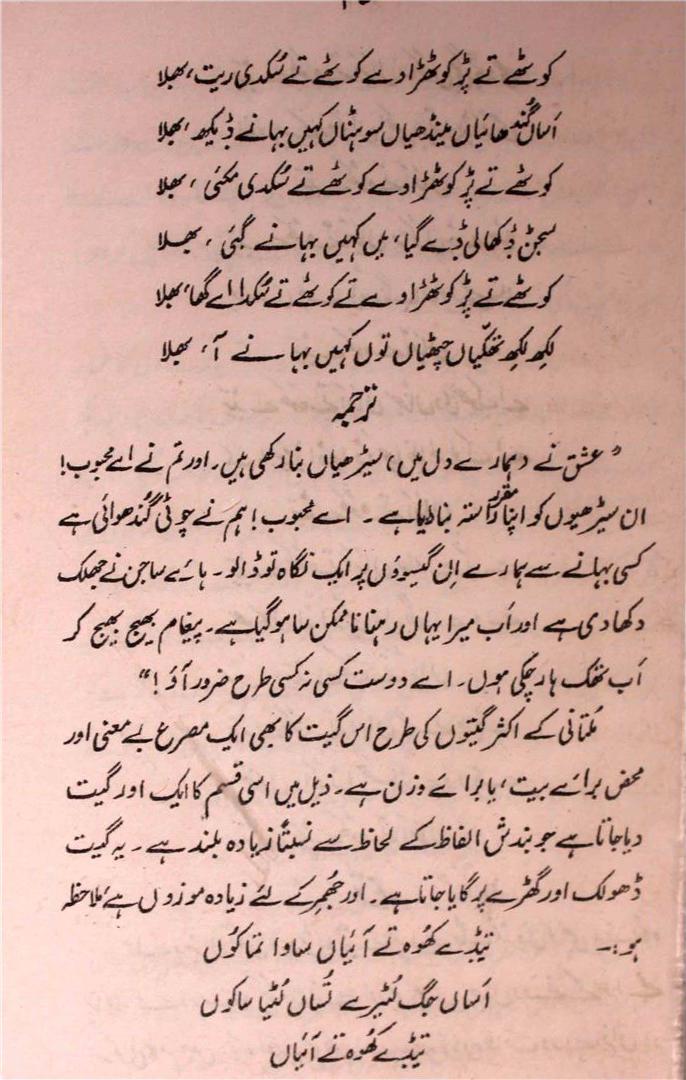 کوٹھے تے پڑ کوٹھڑا وے کوٹھے تے سُکدی ریت، بھلا
اساں گُندھائیاں مینڈھیاں سوہنال کہیں بہانے ڈیکھ، بھلا
کوٹھے تے پڑ کوٹھڑا وے کوٹھے تے سُکدی مکئی، بھلا
سجنْ ڈِکھالی ڈے گیا، میں کہیں بہانے گئی، بھلا
کوٹھے تے پڑ کوٹھڑا وے تے کوٹھے تے سُکدا اے گھا، بھلا
لِکھ لِکھ تھکّیاں چِٹھیاں توں کہیں بہانے آ، بھلا
ترجمہ
"عشق نے (ہمارے دل میں) سیڑھیاں بنا رکھی ہیں۔ اور تم نے اے محبوب!
ان سیڑھیوں کو اپنا مقرر راستہ بنا لیا ہے۔ اے محبوب! ہم نے چوٹی گُندھوائی ہے
کسی بہانے سے ہمارے اِن گیسوؤں پر ایک نگاہ تو ڈالو۔ ہائے ساجن نے جھلک
دکھا دی ہے اور اَب میرا یہاں رہنا ناممکن سا ہوگیا ہے۔ پیغام بھیج بھیج کر
اَب تھک ہار چکی ہوں۔ اے دوست کسی نہ کسی طرح ضرور آؤ!"
مُلتانی کے اکثر گیتوں کی طرح اس گیت کا بھی ایک مصرع بے معنی اور
محض برائے بیت، یا برائے وزن ہے۔ ذیل میں اسی قسم کا ایک اور گیت
دیا جاتا ہے جو بندش الفاظ کے لحاظ سے نسبتاً زیادہ بلند ہے۔ یہ گیت
ڈھولک اور گھڑے پر گایا جاتا ہے۔ اور جھُمِر کے لئے زیادہ موزوں ہے، ملاحظہ
ہو:۔ تیڈے کھُوہ تے آئیاں ساوا تما کُوں
اَساں جگ لُٹیرے تُساں لُٹیا ساکوں
تیڈے کھُوہ تے آئیاں